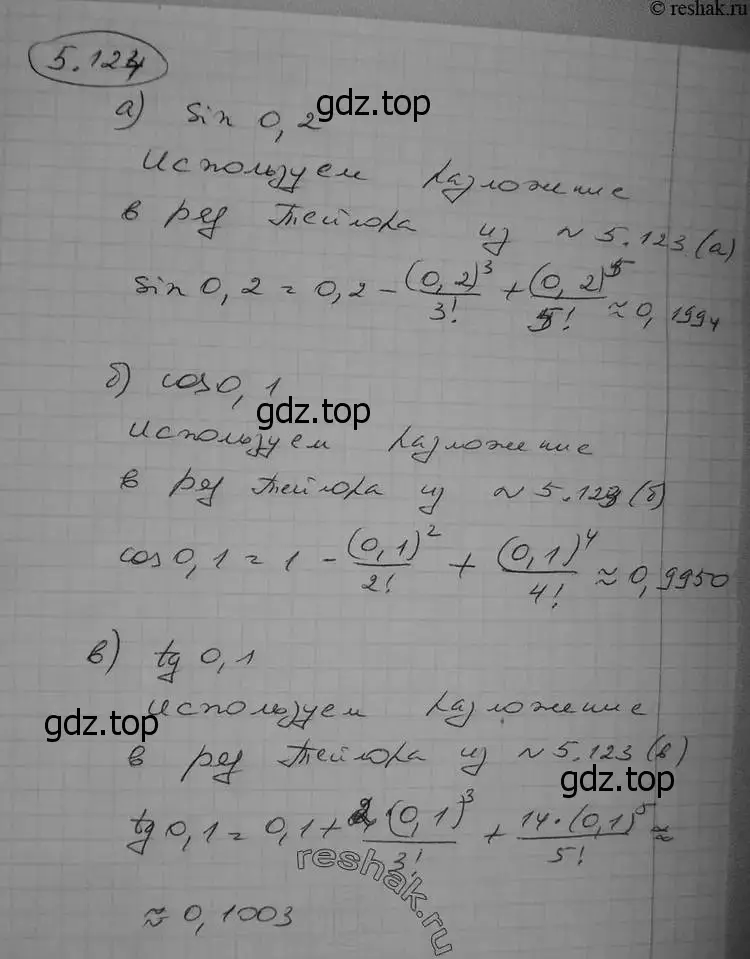 © reshak.ru
5.124
а) sin 0,2
gdz.top
Используем разложение
в ряд Тейлора из ~ 5.123 (а)
sin 0,2 = 0,2 - (0,2)^3/3! + (0,2)^5/5! ≈ 0,1994
б) cos 0,1
gdz.top
Используем разложение
в ряд Тейлора из ~ 5.123 (б)
cos 0,1 = 1 - (0,1)^2/2! + (0,1)^4/4! ≈ 0,9950
в) tg 0,1
Используем разложение
gdz.top
в ряд Тейлора из ~ 5.123 (в)
gdz.top
tg 0,1 = 0,1 + 2(0,1)^3/3! + 14·(0,1)^5/5! ≈
reshak.ru
≈ 0,1003